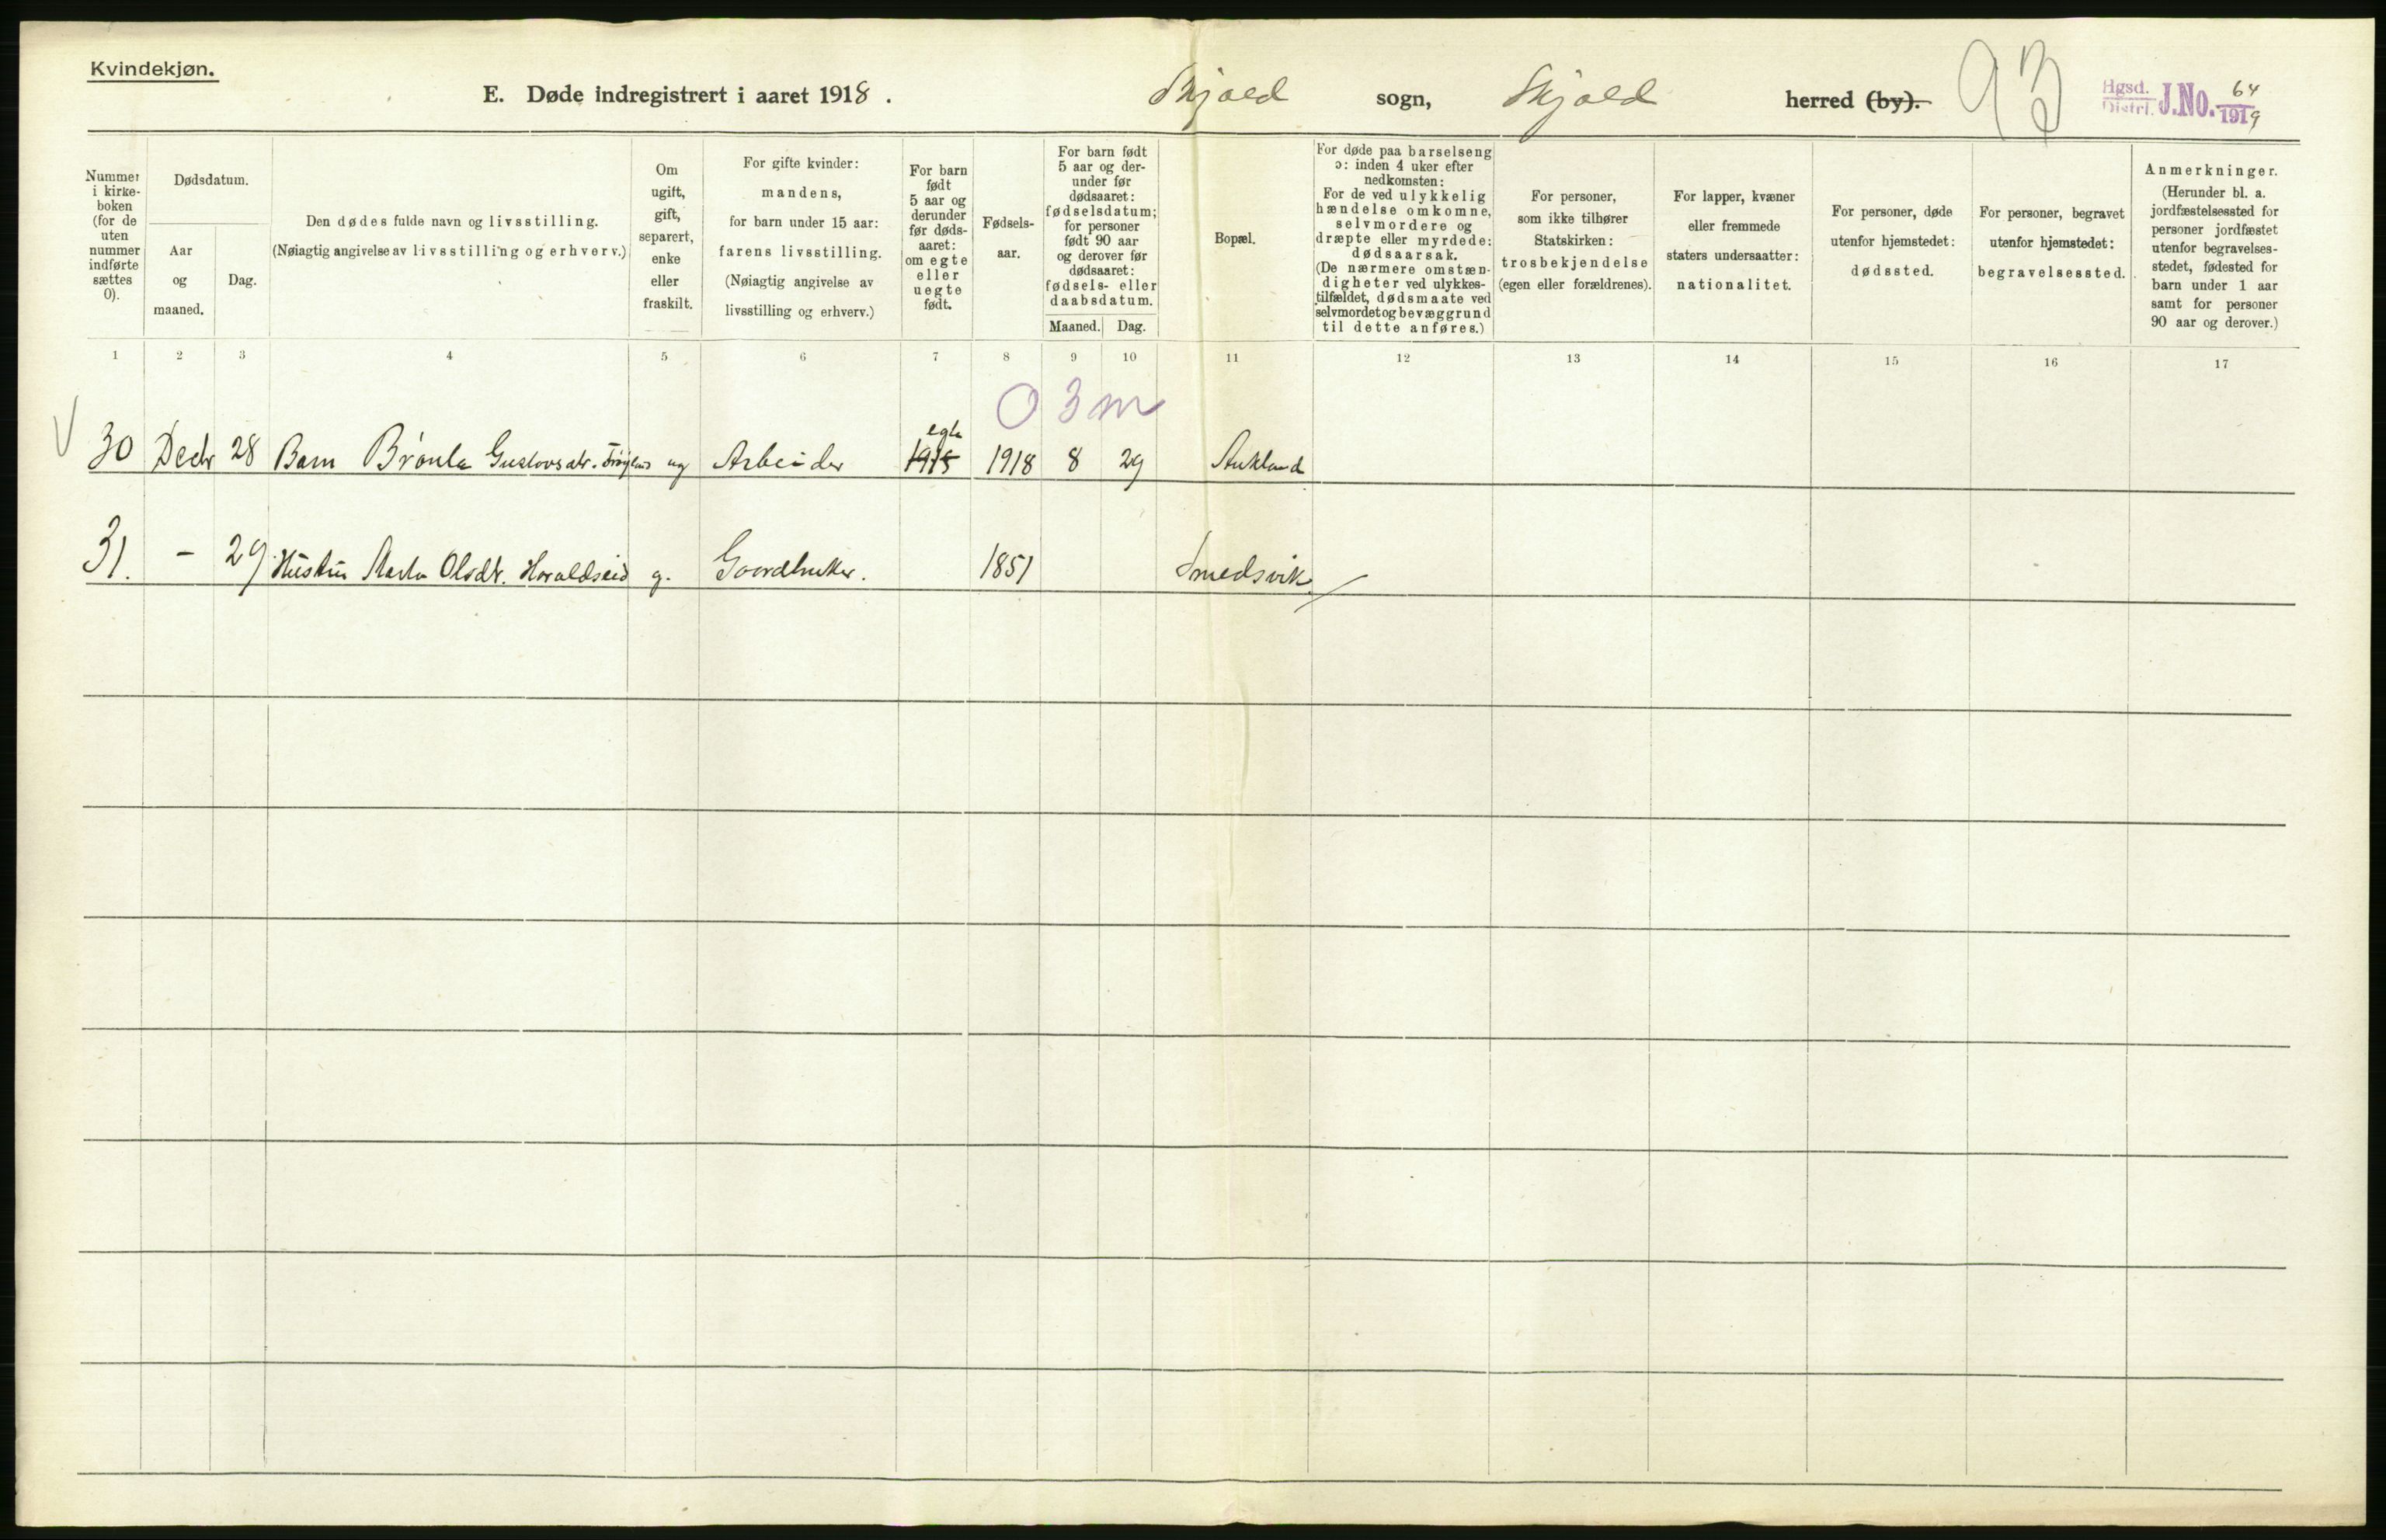 Kvindekjøn.
E. Døde indregistrert i aaret 1918. Skjold sogn, Skjold herred (by).
Hgsd. Distrl. J.No. 64 1919
Nummer i kirke- boken (for de uten nummer indførte sættes 0).
Dødsdatum.
Aar og maaned.
Dag.
Den dødes fulde navn og livsstilling.
(Nøiagtig angivelse av livsstilling og erhverv.)
Om ugift, gift, separert, enke eller fraskilt.
For gifte kvinder: mandens, for barn under 15 aar: farens livsstilling. (Nøiagtig angivelse av livsstilling og erhverv.)
For barn født 5 aar og derunder før døds- aaret: om egte eller uegte født.
Fødsels- aar.
For barn født 5 aar og der- under før dødsaaret: fødselsdatum; for personer født 90 aar og derover før dødsaaret: fødsels- eller daabsdatum.
Maaned. Dag.
Bopæl.
For døde paa barselseng ɔ: inden 4 uker efter nedkomsten: For de ved ulykkelig hændelse omkomne, selvmordere og dræpte eller myrdede: dødsaarsak. (De nærmere omstæn- digheter ved ulykkes- tilfældet, dødsmaate ved selvmordet og bevæggrund til dette anføres.)
For personer, som ikke tilhører Statskirken: trosbekjendelse (egen eller forældrenes).
For lapper, kvæner eller fremmede staters undersaatter: nationalitet.
For personer, døde utenfor hjemstedet: dødssted.
For personer, begravet utenfor hjemstedet: begravelsessted.
Anmerkninger. (Herunder bl. a. jordfæstelsessted for personer jordfæstet utenfor begravelses- stedet, fødested for barn under 1 aar samt for personer 90 aar og derover.)
1 2 3 4 5 6 7 8 9 10 11 12 13 14 15 16 17
0 3 m
30 Decbr 28 Barn Gustavsdtr. ug Arbeider egte 1918 8 29 Aukland
31. - 29 Hustru Marta Olsdtr. Haraldseid g. Gaardbruker. 1851 Smedsvik